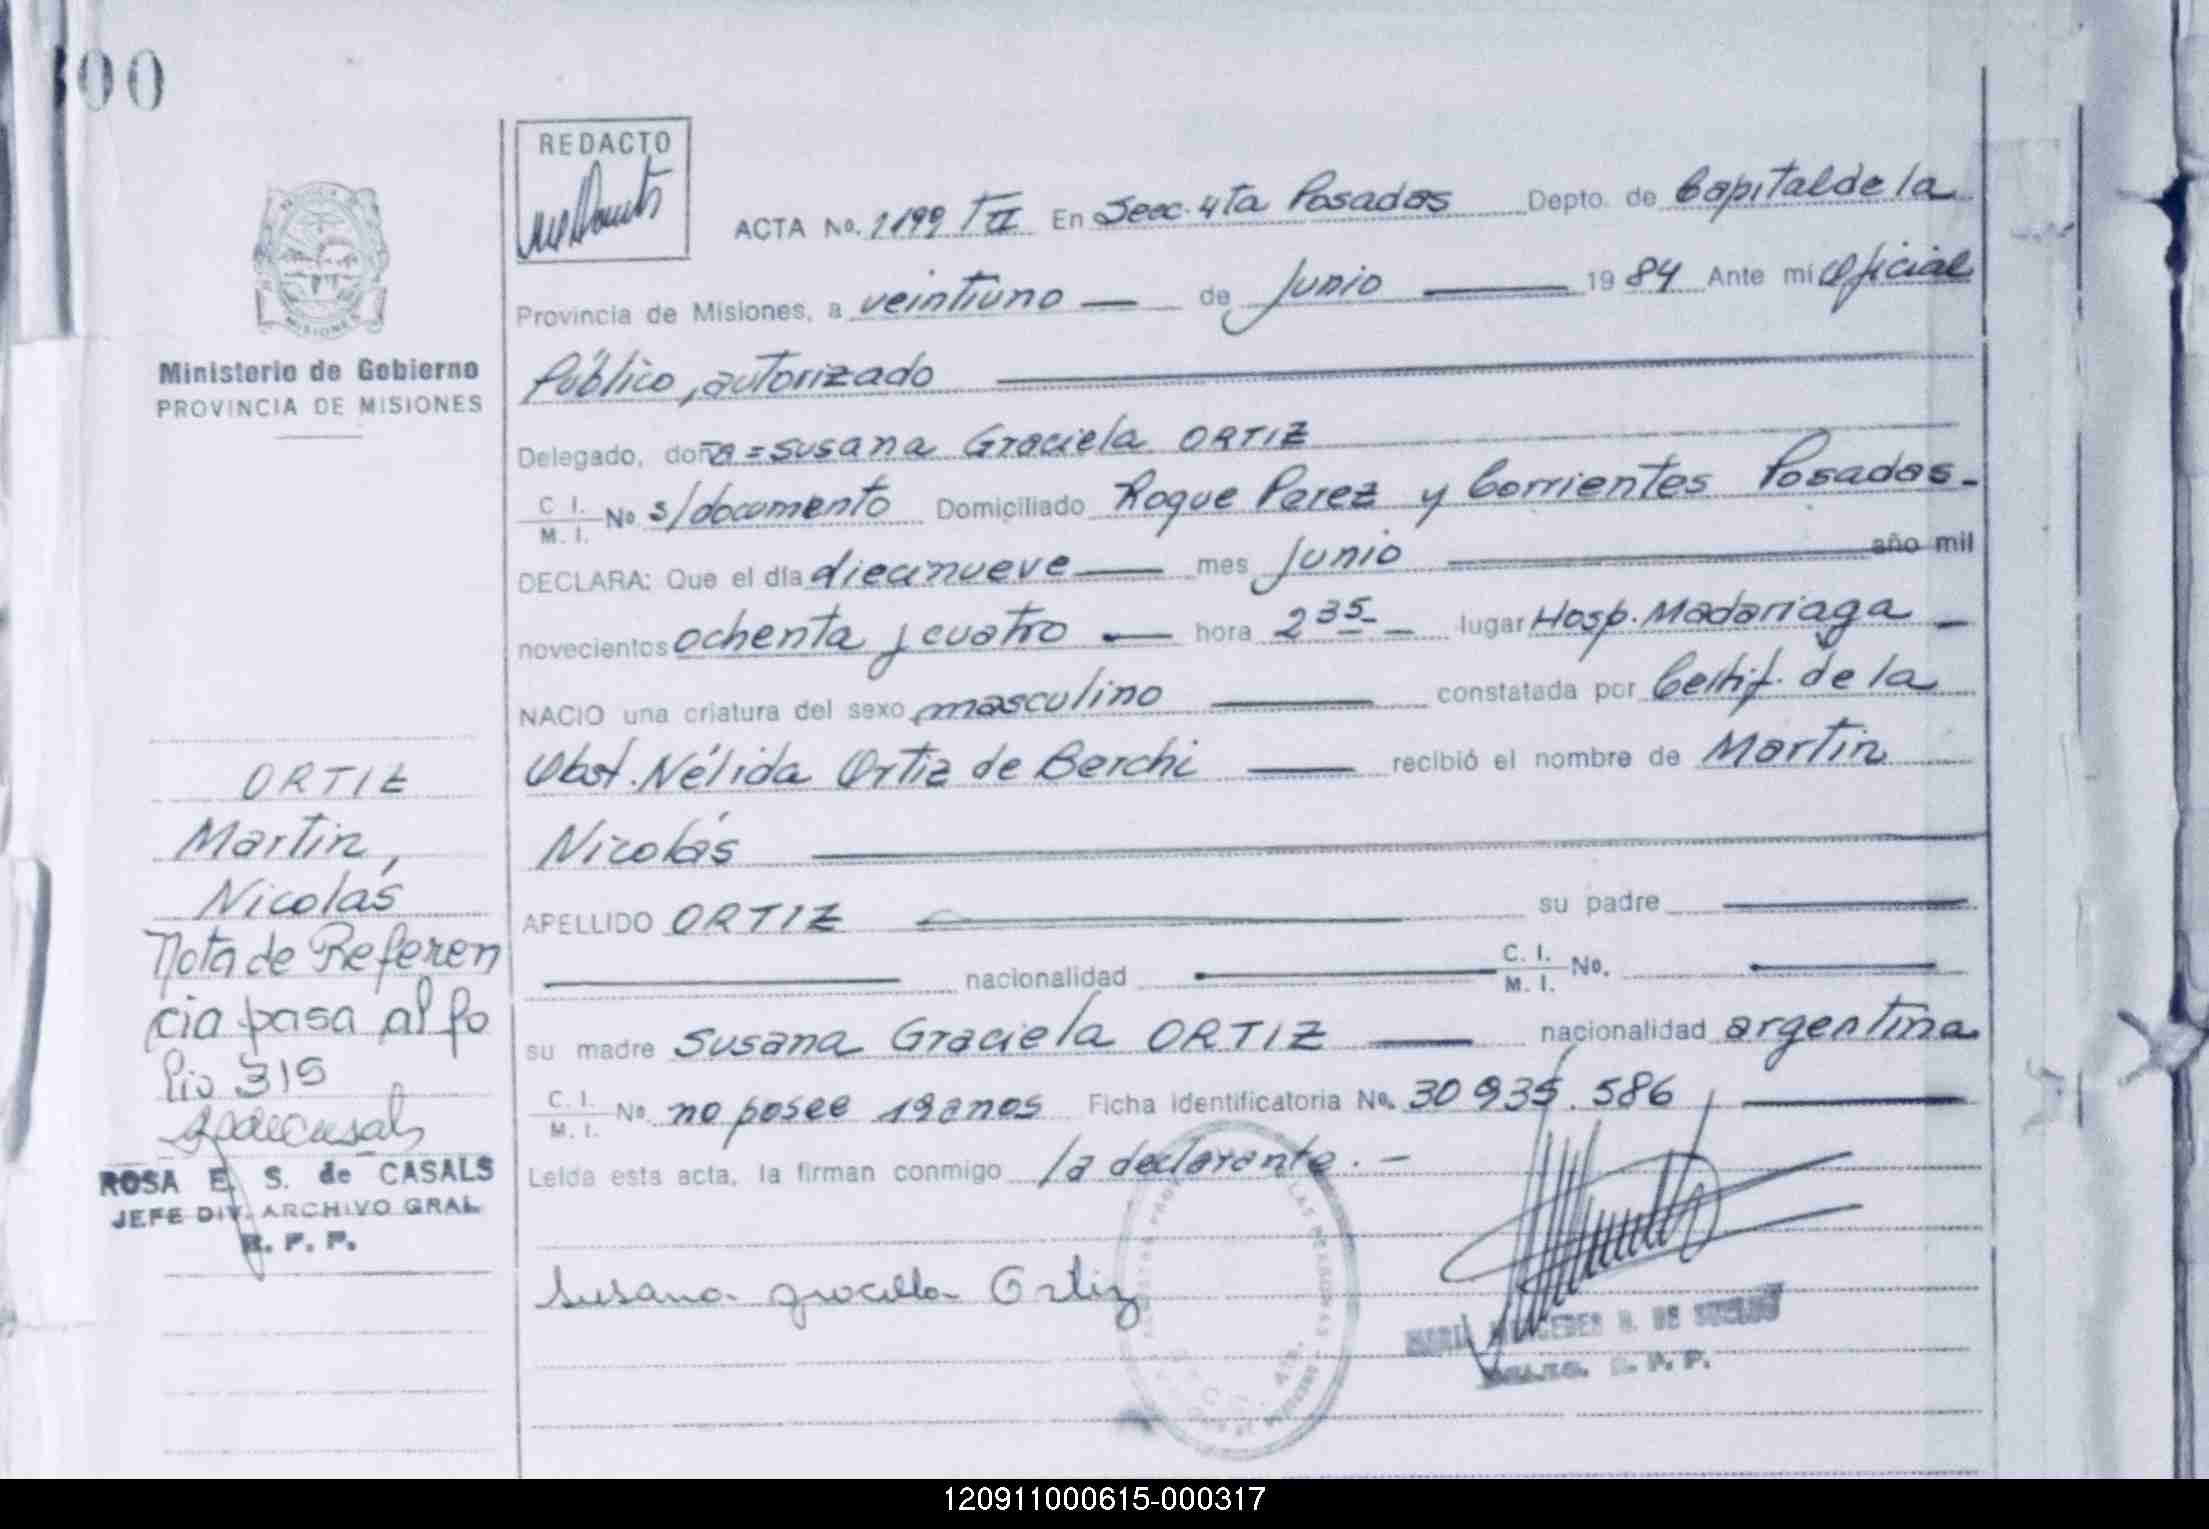 00
REDACTO
ACTA No. 1199 TII En Secc. 4ta Posadas Depto. de Capital de la
Provincia de Misiones, a veintiuno — de Junio — 1984 Ante mí Oficial
Ministerio de Gobierno
PROVINCIA DE MISIONES
Público, autorizado
Delegado, doña = Susana Graciela ORTIZ
C. I.
M. I. No s/documento Domiciliado Roque Perez y Corrientes Posadas.-
DECLARA: Que el día diecinueve — mes Junio — año mil
novecientos ochenta y cuatro — hora 2 35 - - lugar Hosp. Madariaga —
NACIO una criatura del sexo masculino — constatada por Certif. de la
Obst. Nélida Ortiz de Berchi — recibió el nombre de Martin
Nicolás
APELLIDO ORTIZ — su padre —
— nacionalidad — C. I.
M. I. No. —
su madre Susana Graciela ORTIZ — nacionalidad argentina
C. I.
M. I. No. no posee 19 anos Ficha identificatoria No. 30 935.586 —
Leída esta acta, la firman conmigo la declarante. -
Susana gracella Ortiz
ORTIZ
Martin,
Nicolás
Nota de Referen
cia pasa al fo
lio 315
ROSA E. S. de CASALS
JEFE DIV. ARCHIVO GRAL
R. P. P.
MARIA MERCEDES
R. P. P.
120911000615-000317